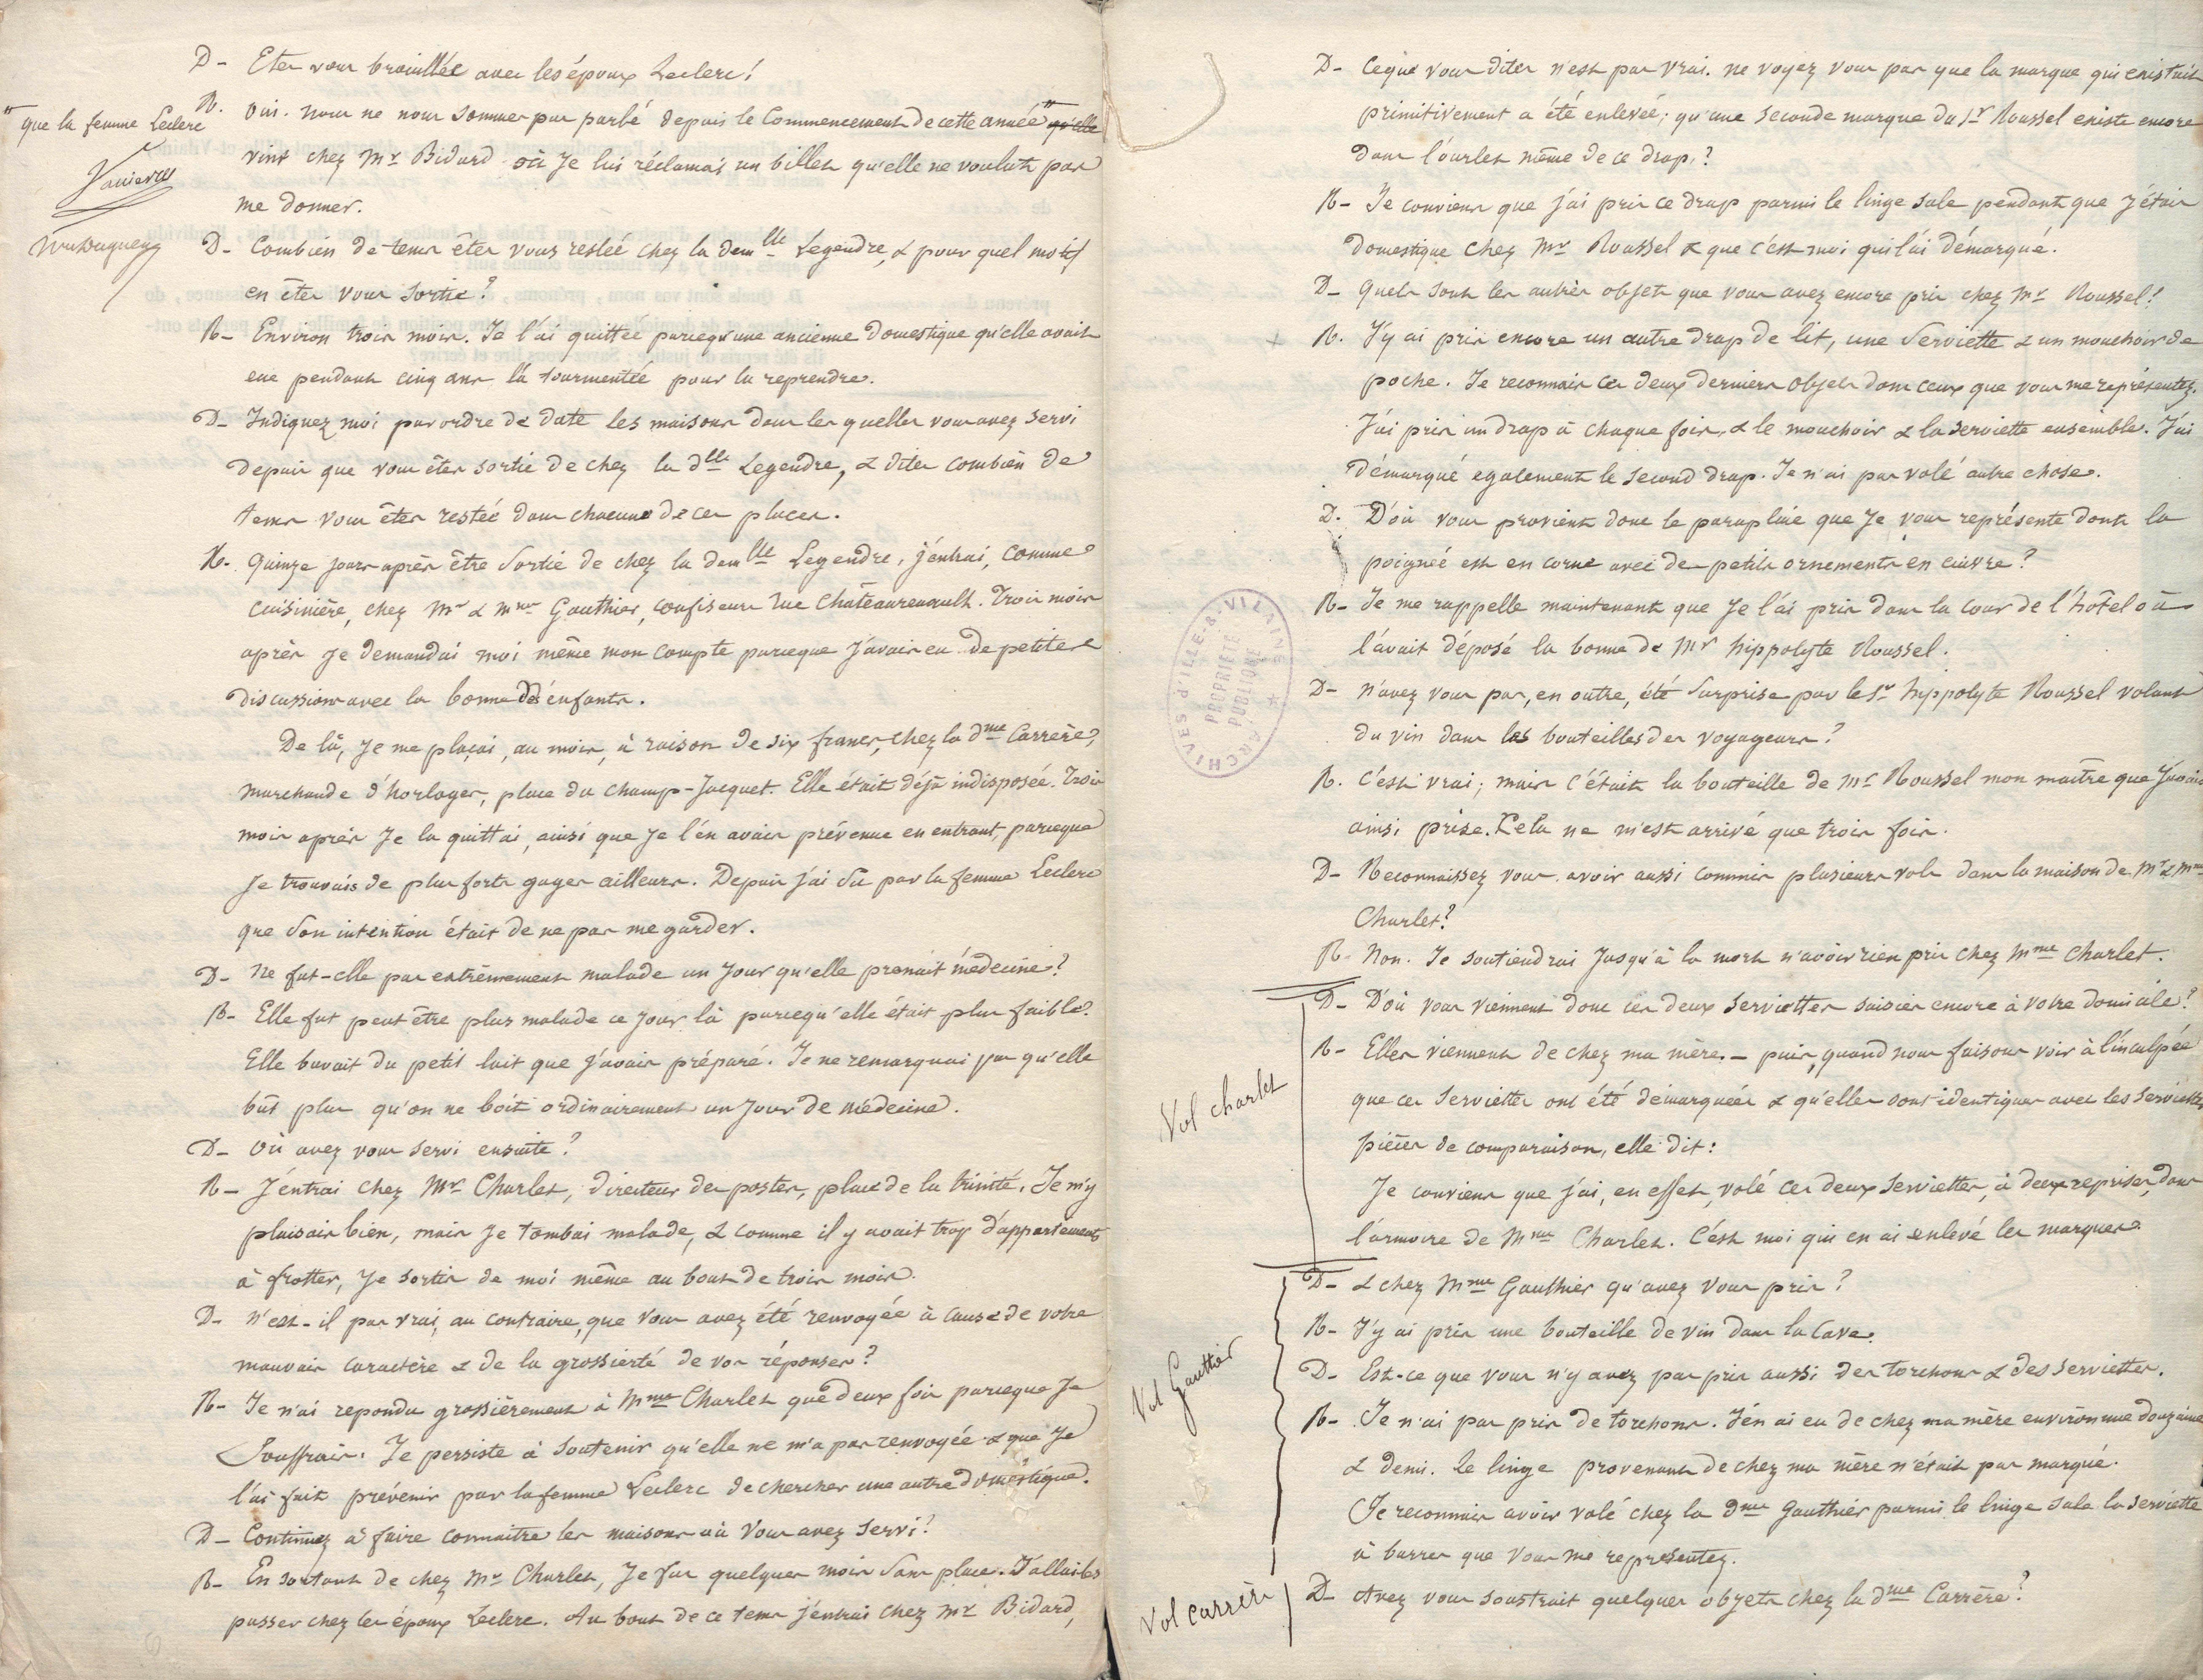 D - Etes vous brouillée avec les époux Leclerc?
R. oui. nous ne nous sommes pas parlé depuis le Commencement de cette année qu'elle
" que la femme Leclerc
vint chez Mr Bidard où Je lui réclamai un billet qu'elle ne voulut pas
me donner.
D - Combien de tems êtes vous restée chez la demlle Legendre, & pour quel motif
en êtes vous sortie?
R - Environ trois mois. Je l'ai quittée parcequ'une ancienne domestique qu'elle avait
eue pendant cinq ans l'a tourmentée pour la reprendre.
D - Indiquez moi par ordre de date les maisons dans les quelles vous avez servi
depuis que vous êtes sortie de chez la dlle Legendre, & dites combien de
tems vous êtes restée dans chacune de ces places.
R. Quinze jours après être sortie de chez la demlle Legendre, j'entrai, comme
cuisinière, chez Mr & Mme Gauthier, confiseurs rue Châteaurenault. Trois mois
après Je demandai moi même mon compte parceque J'avais eu de petites
discussions avec la bonne des enfants.
De là, Je me plaçai, au mois, à raison de six francs, chez la dme Carrère,
marchande d'horloges, place du champ-Jacquet. Elle était déjà indisposée. Trois
mois après Je la quittai, ainsi que Je l'en avais prévenue en entrant, parceque
Je trouvais de plus forts gages ailleurs. Depuis j'ai su par la femme Leclerc
que son intention était de ne pas me garder.
D - Ne fut-elle pas extrêmement malade un Jour qu'elle prenait médecine?
R - Elle fut peut être plus malade ce Jour là parcequ'elle était plus faible.
Elle buvait du petit lait que j'avais préparé. Je ne remarquai pas qu'elle
bût plus qu'on ne boit ordinairement un Jour de médecine.
D - Où avez vous servi ensuite?
R - J'entrai chez Mr Charlet, directeur des postes, place de la trinité. Je m'y
plaisais bien, mais Je tombai malade, & comme il y avait trop d'appartements
à frotter, Je sortis de moi même au bout de trois mois.
D - N'est-il pas vrai, au contraire, que vous avez été renvoyée à cause de votre
mauvais caractère & de la grossierté de vos réponses?
R - Je n'ai repondu grossièrement à Mme Charlet que deux fois parceque Je
souffrais. Je persiste à soutenir qu'elle ne m'a pas renvoyée & que Je
l'ai fait prévenir par la femme Leclerc de chercher une autre domestique.
D - Continuez à faire connaitre les maisons où vous avez servi?
R - En sortant de chez Mr Charlet, Je fus quelques mois sans place. J'allai les
passer chez les époux Leclerc. Au bout de ce tems j'entrai chez Mr Bidard,
D - Ce que vous dites n'est pas vrai. ne voyez vous pas que la marque qui existait
primitivement a été enlevée; qu'une seconde marque du Sr Roussel existe encore
dans l'ourlet même de ce drap.?
R - Je conviens que j'ai pris ce drap parmi le linge sale pendant que j'étais
domestique chez Mr Roussel & que c'est moi qui l'ai démarqué.
D - Quels sont les autres objets que vous avez encore pris chez Mr Roussel?
R. J'y ai pris encore un autre drap de lit, une serviette & un mouchoir de
poche. Je reconnais ces deux derniers objets dans ceux que vous me représentez.
J'ai pris un drap à chaque fois, & le mouchoir & la serviette ensemble. J'ai
démarqué egalement le second drap. Je n'ai pas volé autre chose.
D. D'où vous provient donc le parapluie que Je vous représente dont la
poignée est en corne avec de petits ornements en cuivre?
R - Je me rappelle maintenant que Je l'ai pris dans la cour de l'hôtel où
l'avait déposé la bonne de Mr hippolyte Roussel.
D - N'avez vous pas, en outre, été surprise par le Sr hyppolyte Roussel volant
du vin dans les bouteilles des voyageurs?
R. C'est vrai; mais c'était la bouteille de Mr Roussel mon maître que J'avais
ainsi prise. Cela ne m'est arrivé que trois fois.
D - Reconnaissez vous avoir aussi commis plusieurs vols dans la maison de Mr & Mme
Charlet?
R - Non. Je soutiendrai Jusqu'à la mort n'avoir rien pris chez Mme Charlet.
Vol charlet
D - D'où vous viennent donc ces deux serviettes saisies encore à votre domicile?
R - Elles viennent de chez ma mère. - puis, quand nous faisons voir à l'inculpée
que ces serviettes ont été démarquées & qu'elles sont identiques avec les serviettes
pièces de comparaison, elle dit:
Je conviens que j'ai, en effet, volé ces deux serviettes, à deux reprises, dans
l'armoire de Mme Charlet. C'est moi qui en ai enlevé les marques.
Vol Gauthier
D - & chez Mme Gauthier qu'avez vous pris?
R - J'y ai pris une bouteille de vin dans la Cave.
D - Est-ce que vous n'y avez pas pris aussi des torchons & des serviettes.
R - Je n'ai pas pris de torchons. J'en ai eu de chez ma mère environ une douzaine
& demi. le linge provenant de chez ma mère n'était pas marqué.
Je reconnais avoir volé chez la dme Gauthier parmi le linge sale la serviette
à barres que vous me representez.
Vol Carrère
D - Avez vous soustrait quelques objets chez la dme Carrère?
ARCHIVES d'ILLE-&-VILAINE
PROPRIÉTÉ
PUBLIQUE